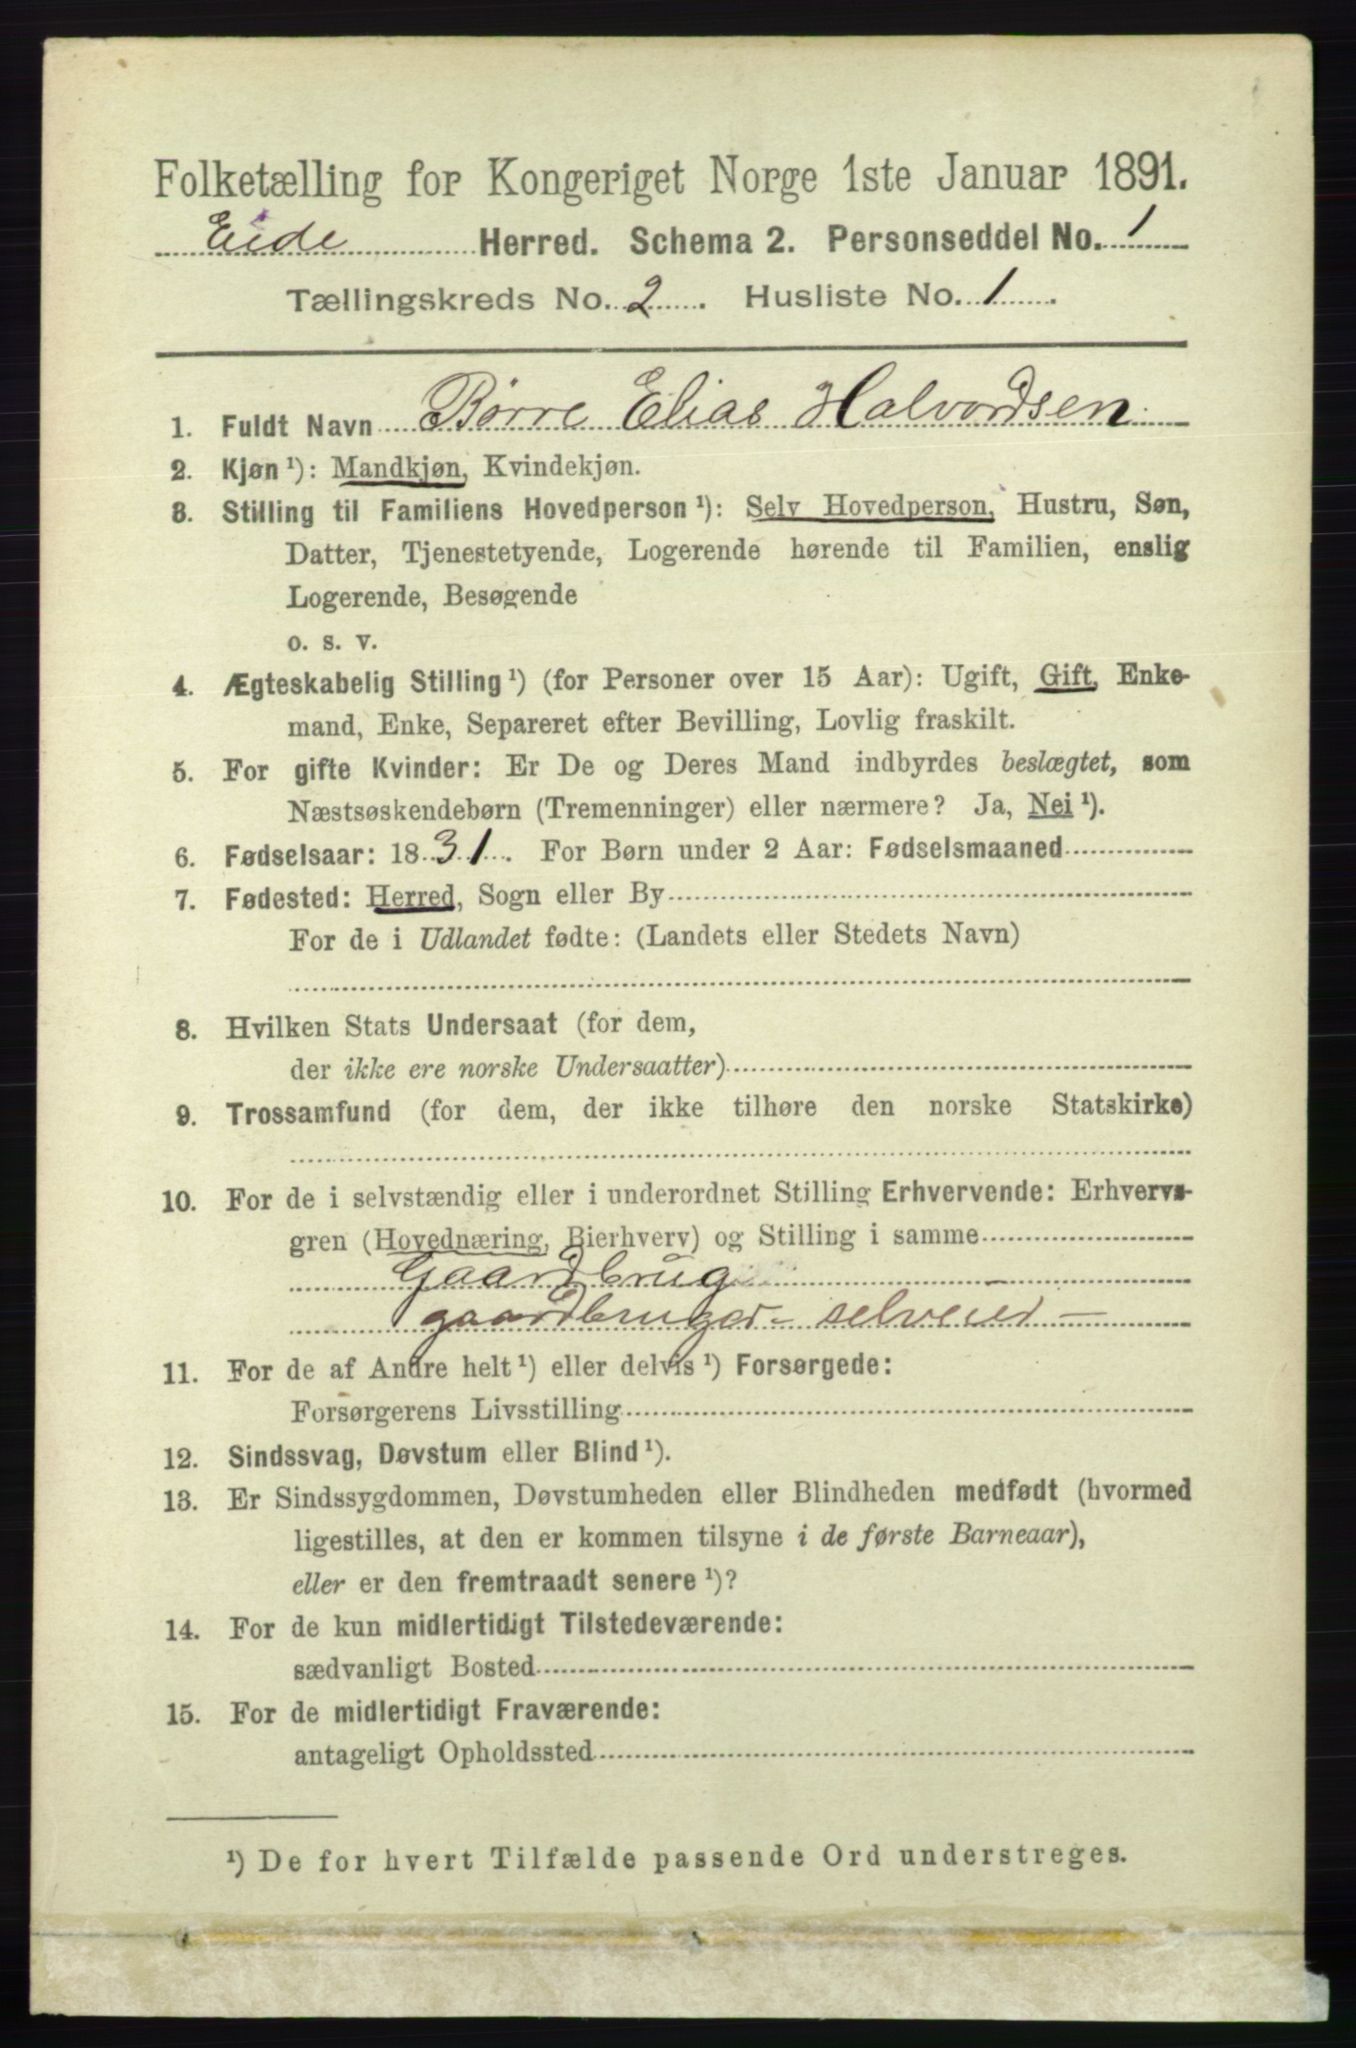 Folketælling for Kongeriget Norge 1ste Januar 1891.
Eide Herred. Schema 2. Personseddel No. 1
Tællingskreds No. 2. Husliste No. 1.
1. Fuldt Navn Børre Elias Halvordsen
2. Kjøn ¹): Mandkjøn, Kvindekjøn.
3. Stilling til Familiens Hovedperson ¹): Selv Hovedperson, Hustru, Søn,
Datter, Tjenestetyende, Logerende hørende til Familien, enslig
Logerende, Besøgende
o. s. v.
4. Ægteskabelig Stilling ¹) (for Personer over 15 Aar): Ugift, Gift, Enke-
mand, Enke, Separeret efter Bevilling, Lovlig fraskilt.
5. For gifte Kvinder: Er De og Deres Mand indbyrdes beslægtet, som
Næstsøskendebørn (Tremenninger) eller nærmere? Ja, Nei ¹).
6. Fødselsaar: 1831. For Børn under 2 Aar: Fødselsmaaned
7. Fødested: Herred, Sogn eller By
For de i Udlandet fødte: (Landets eller Stedets Navn)
8. Hvilken Stats Undersaat (for dem,
der ikke ere norske Undersaatter)
9. Trossamfund (for dem, der ikke tilhøre den norske Statskirke)
10. For de i selvstændig eller i underordnet Stilling Erhvervende: Erhvervs-
gren (Hovednæring, Bierhverv) og Stilling i samme
Gaardbrug
gaardbruger - selveier -
11. For de af Andre helt ¹) eller delvis ¹) Forsørgede:
Forsørgerens Livsstilling
12. Sindssvag, Døvstum eller Blind ¹).
13. Er Sindssygdommen, Døvstumheden eller Blindheden medfødt (hvormed
ligestilles, at den er kommen tilsyne i de første Barneaar),
eller er den fremtraadt senere ¹)?
14. For de kun midlertidigt Tilstedeværende:
sædvanligt Bosted
15. For de midlertidigt Fraværende:
antageligt Opholdssted
¹) De for hvert Tilfælde passende Ord understreges.